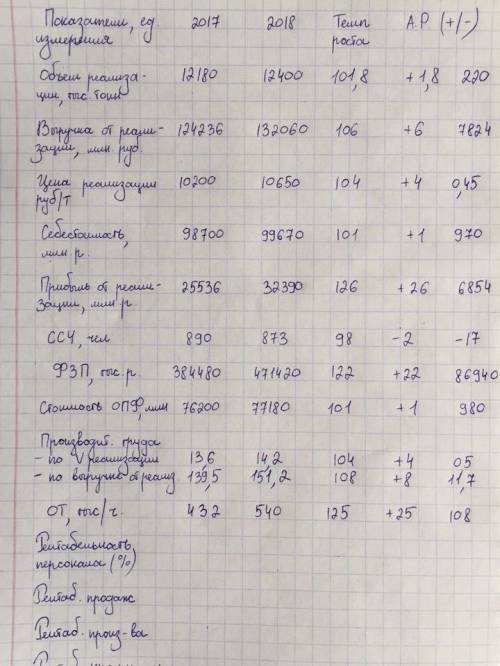 Показатели, ед. 2017 2018 Темп А.Р (+/-)
измерения роста
Объем реализа- 12180 12400 101,8 +1,8 220
ции, тыс. тонн
Выручка от реали- 124236 132060 106 +6 7824
зации, млн. руб.
Цена реализации 10200 10650 104 +4 0,45
руб/т
Себестоимость, 98700 99670 101 +1 970
млн р.
Прибыль от реали- 25536 32390 126 +26 6854
зации, млн р.
ССЧ, чел 890 873 98 -2 -17
ФЗП, тыс. р. 384480 471420 122 +22 86940
Стоимость ОПФ, млн 76200 77180 101 +1 980
Производит. труда
- по V реализации 13,6 14,2 104 +4 05
- по выручке от реализ 139,5 151,2 108 +8 11,7
ОТ, тыс/ч. 432 540 125 +25 108
Рентабельность
персонала (%)
Рентаб. продаж
Рентаб. произ-ва